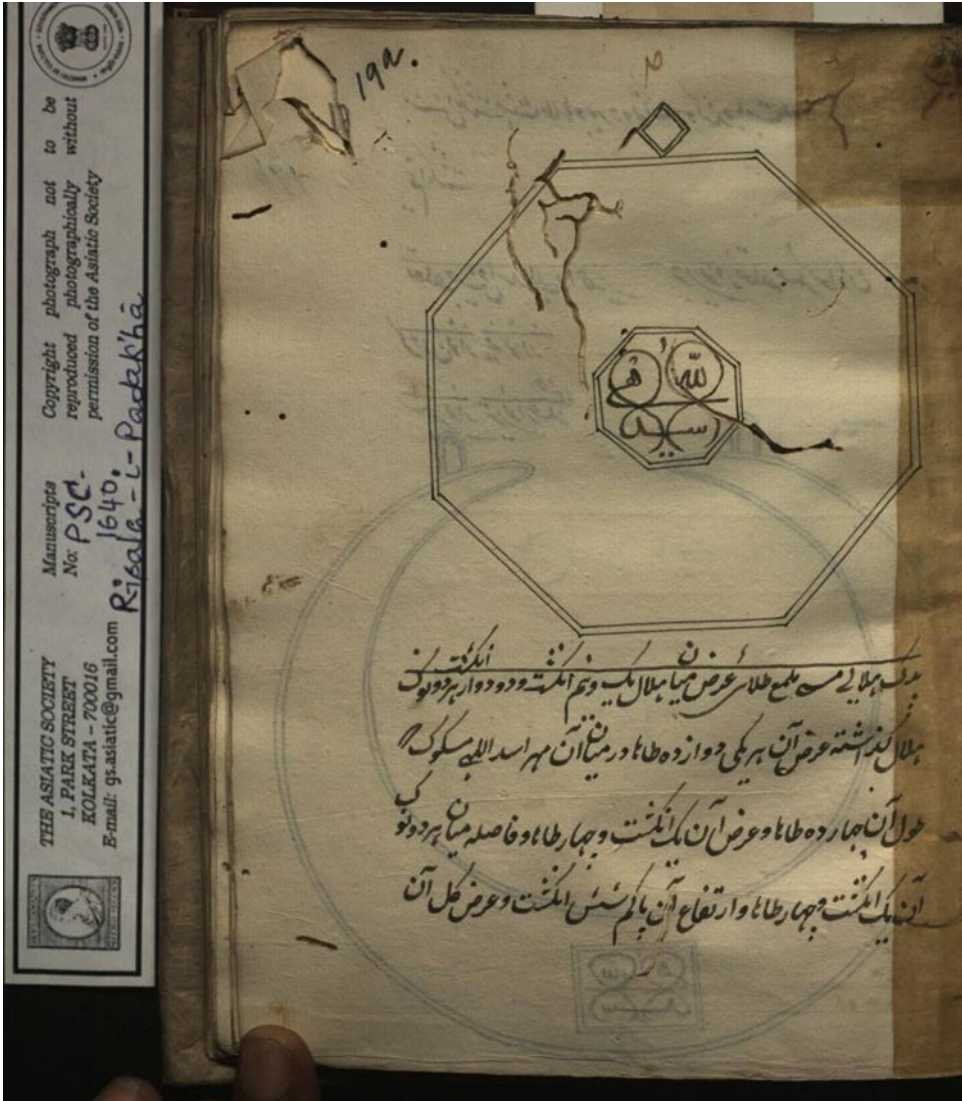 THE ASIATIC SOCIETY
1, PARK STREET
KOLKATA - 700016
E-mail: gs.asiatic@gmail.com
Manuscripts
No: PSC-
1640.
Risala-i-Padak'ha
Copyright photograph not to be
reproduced photographically without
permission of the Asiatic Society
19a.
پدک هلالی مسی ملمع طلائی عرض میان هلال یک و نیم انگشت و دو دوار هر دو نوک
هلال گذاشته عرض آن هر یکی دوازده طاها در میان آن مهر اسد اللهی مسکوک
طول آن چهارده طاها و عرض آن یک انگشت و چهار طاها و فاصله میان هر دو نوک
آن یک انگشت و چهار طاها و ارتفاع آن پاکم شش انگشت و عرض کل آن